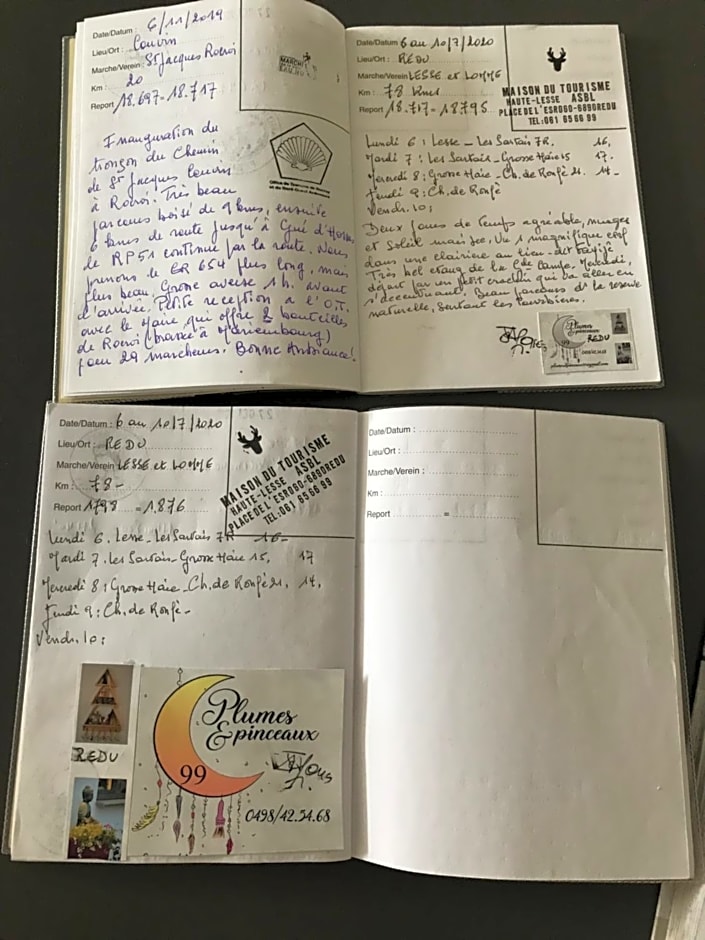 Date/Datum : 6/11/2019
Lieu/Ort : Couvin
Marche/Verein : St Jacques Rocroi
Km : 20
Report 18.697 = 18.717
Inauguration du
tronçon du Chemin
de St Jacques Couvin
à Rocroi. Très beau
parcours boisé de 9 kms, ensuite
6 kms de route jusqu'à Gué d'Hossus
le RP51 continue par la route. Nous
prenons le GR 654 plus long, mais
plus beau. Grosse averse 1h. avant
l'arrivée. Petite reception à l'O.T.
avec le Maire qui offre 2 bouteilles
de Rocroi (brassée à Mariembourg)
pour 29 marcheurs. Bonne Ambiance!
Date/Datum : 6 au 10/7/2020
Lieu/Ort : REDU
Marche/Verein : LESSE et LOMME
Km : 78 kms
Report 18.717 = 18.795
MAISON DU TOURISME
HAUTE-LESSE ASBL
PLACE DE L'ESRO 60-6890 REDU
TEL: 061 65 66 99
Lundi 6 : Lesse - Les Sartais 7R. 16,
Mardi 7 : Les Sartais - Grosse Haie 15 17.
Mercredi 8 : Grosse Haie - Ch. de Ronfè 21. 14 -
Jeudi 9 : Ch. de Ronfè
Vendr. 10 ;
Deux jours de temps agréable, nuages
et soleil mais sec. Vu 1 magnifique cerf
dans une clairière au lieu-dit
Très bel étang de la Mercredi,
départ par un petit crachin qui va aller en
s'accentuant. Beau parcours ds la réserve
naturelle, sentant les tourbières.
Plumes
& pinceaux
99 REDU
Date/Datum : 6 au 10/7/2020
Lieu/Ort : REDU
Marche/Verein LESSE et LOMME
Km : 78 -
Report 1798 = 1876
MAISON DU TOURISME
HAUTE-LESSE ASBL
PLACE DE L'ESRO 60-6890 REDU
TEL: 061 65 66 99
Lundi 6. Lesse - Les Sartais 7R 16 -
Mardi 7. Les Sartais - Grosse Haie 15, 17
Mercredi 8 : Grosse Haie - Ch. de Ronfè 21, 14,
Jeudi 9 : Ch. de Ronfè -
Vendr. 10 :
REDU
Plumes
& pinceaux
99
0498/42.54.68
Date/Datum :
Lieu/Ort :
Marche/Verein :
Km :
Report =